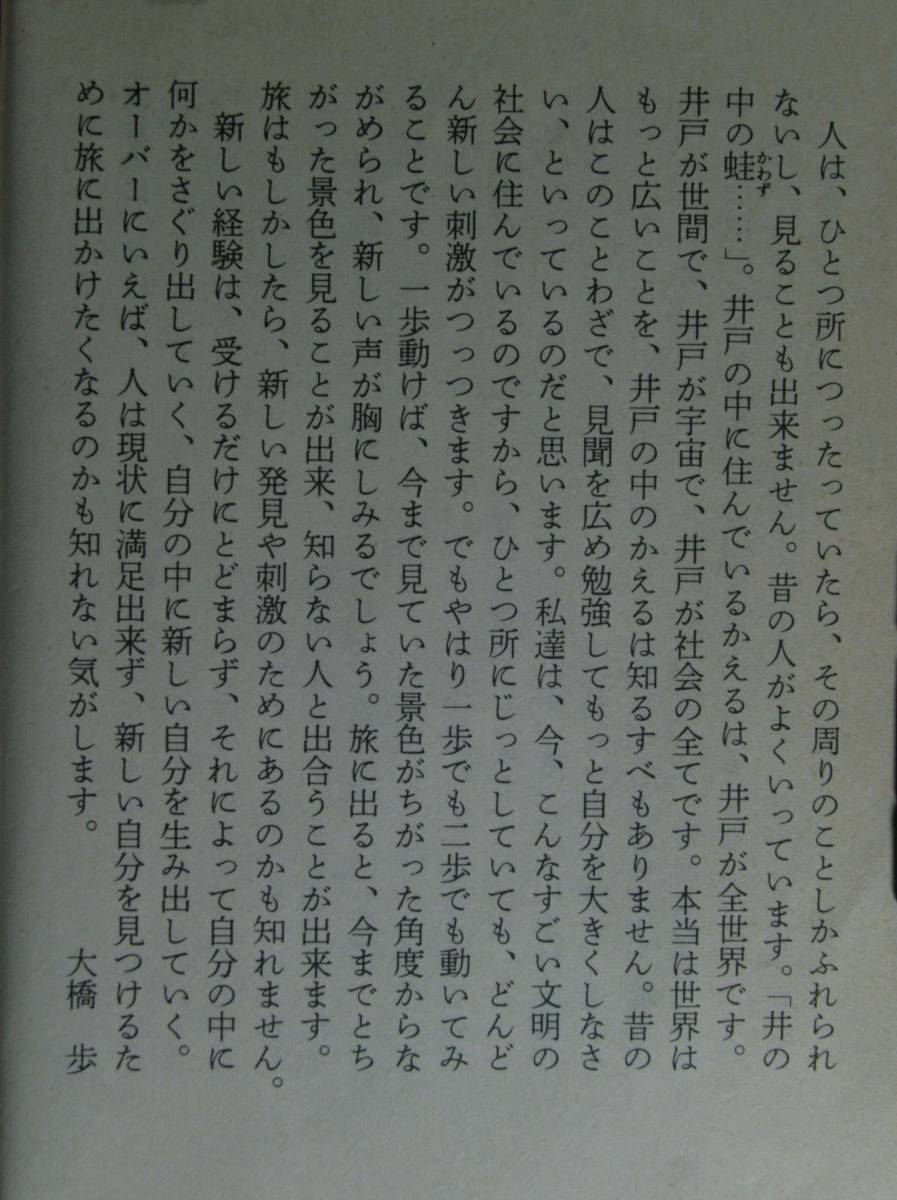 人は、ひとつ所につったっていたら、その周りのことしかふれられ
ないし、見ることも出来ません。昔の人がよくいっています。「井の
中の蛙……」。井戸の中に住んでいるかえるは、井戸が全世界です。
井戸が世間で、井戸が宇宙で、井戸が社会の全てです。本当は世界は
もっと広いことを、井戸の中のかえるは知るすべもありません。昔の
人はこのことわざで、見聞を広め勉強してもっと自分を大きくしなさ
い、といっているのだと思います。私達は、今、こんなすごい文明の
社会に住んでいるのですから、ひとつ所にじっとしていても、どんど
ん新しい刺激がつっつきます。でもやはり一歩でも二歩でも動いてみ
ることです。一歩動けば、今まで見ていた景色がちがった角度からな
がめられ、新しい声が胸にしみるでしょう。旅に出ると、今までとち
がった景色を見ることが出来、知らない人と出合うことが出来ます。
旅はもしかしたら、新しい発見や刺激のためにあるのかも知れません。
新しい経験は、受けるだけにとどまらず、それによって自分の中に
何かをさぐり出していく、自分の中に新しい自分を生み出していく。
オーバーにいえば、人は現状に満足出来ず、新しい自分を見つけるた
めに旅に出かけたくなるのかも知れない気がします。　大橋　歩